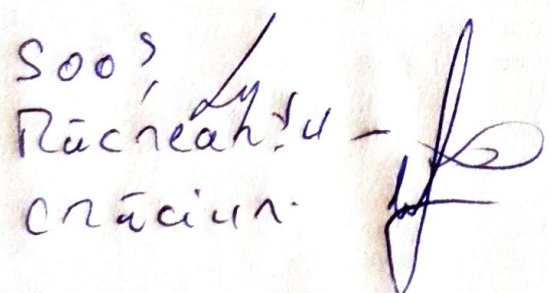 Soos,
Răcreanțu -
Crăciun.